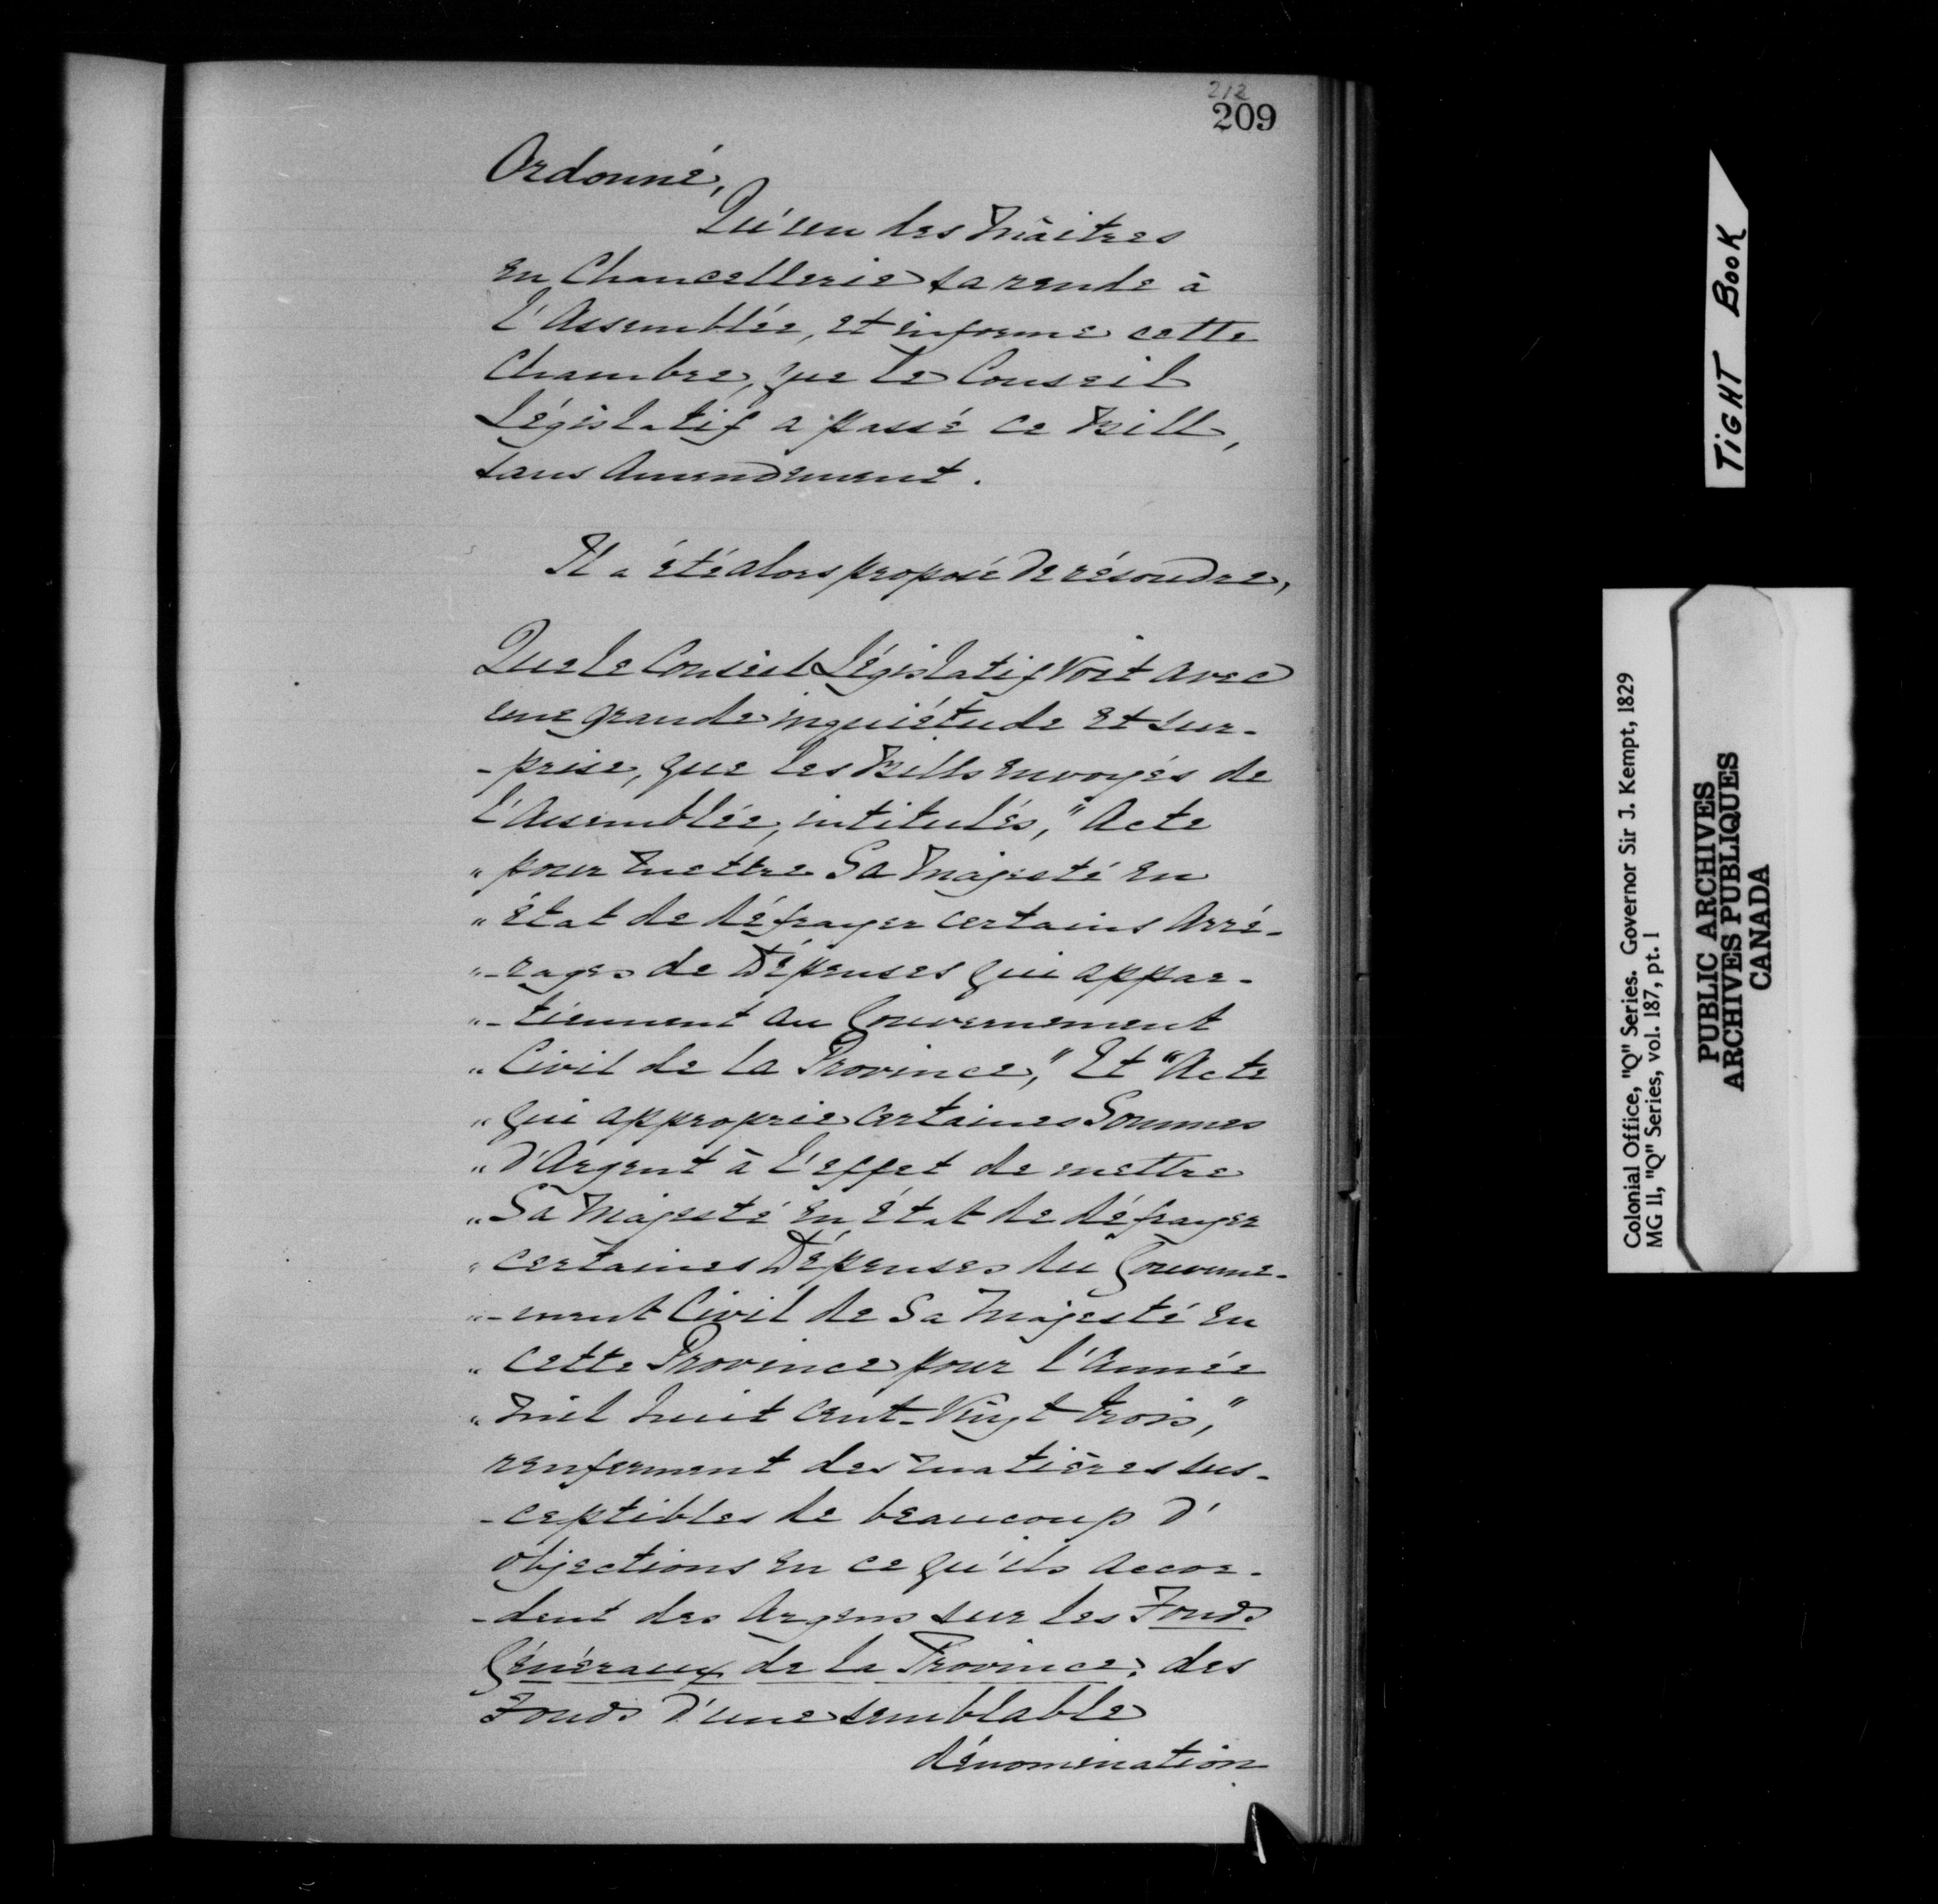 212
209
Ordonné,
Qu'un des Maîtres
en Chancellerie se rende à
l'Assemblée, et informe cette
Chambre, que le Conseil
Législatif a passé ce Bill,
sans Amendement.
Il a été alors proposé de résoudre,
Que le Conseil Législatif voit avec
une grande inquiétude et sur-
-prise, que les Bills envoyés de
l'Assemblée, intitulés, "Acte
"pour mettre Sa Majesté en
"État de défrayer certains Arré-
"-rages de Dépenses qui appar-
"-tiennent au Gouvernement
"Civil de la Province," Et "Acte
"qui approprie certaines Sommes
"d'Argent à l'effet de mettre
"Sa Majesté en État de défrayer
"certaines Dépenses du Gouverne-
"-ment Civil de Sa Majesté en
"cette Province pour l'Année
"mil huit cent-vingt trois,"
renferment des matières sus-
-ceptibles de beaucoup d'
objections en ce qu'ils accor-
-dent des Argens sur les Fonds
Généraux de la Province; des
Fonds d'une semblable
dénomination
TIGHT BOOK
Colonial Office, "Q" Series. Governor Sir J. Kempt, 1829
MG 11, "Q" Series, vol. 187, pt. 1
PUBLIC ARCHIVES
ARCHIVES PUBLIQUES
CANADA